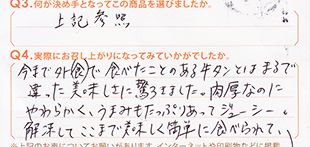 Q3.何が決め手となってこの商品を選びましたか。
上記参照
Q4.実際にお召し上がりになってみていかがでしたか。
今まで外食で食べたことのある牛タンとはまるで
違った美味しさに驚きました。肉厚なのに
やわらかく、うまみもたっぷりあってジューシー。
解凍してここまで美味しく簡単に食べられて、